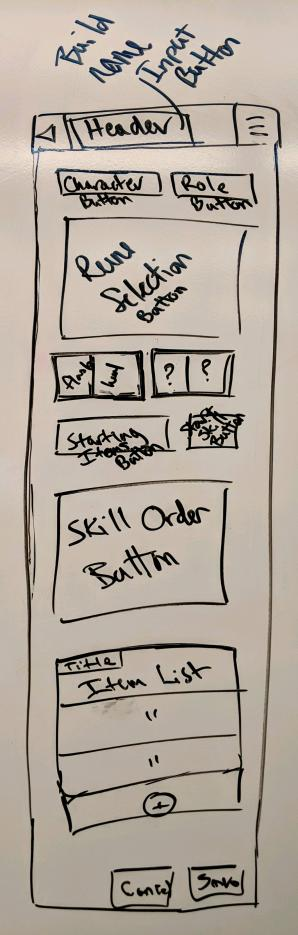 Build
name Input
Button
Header
Character Role
Button Button
Rune
Selection
Button
Flash ? ?
Starting Start
Items Skill
Button Button
Skill Order
Button
Title
Item List
"
"
+
Cancel Save